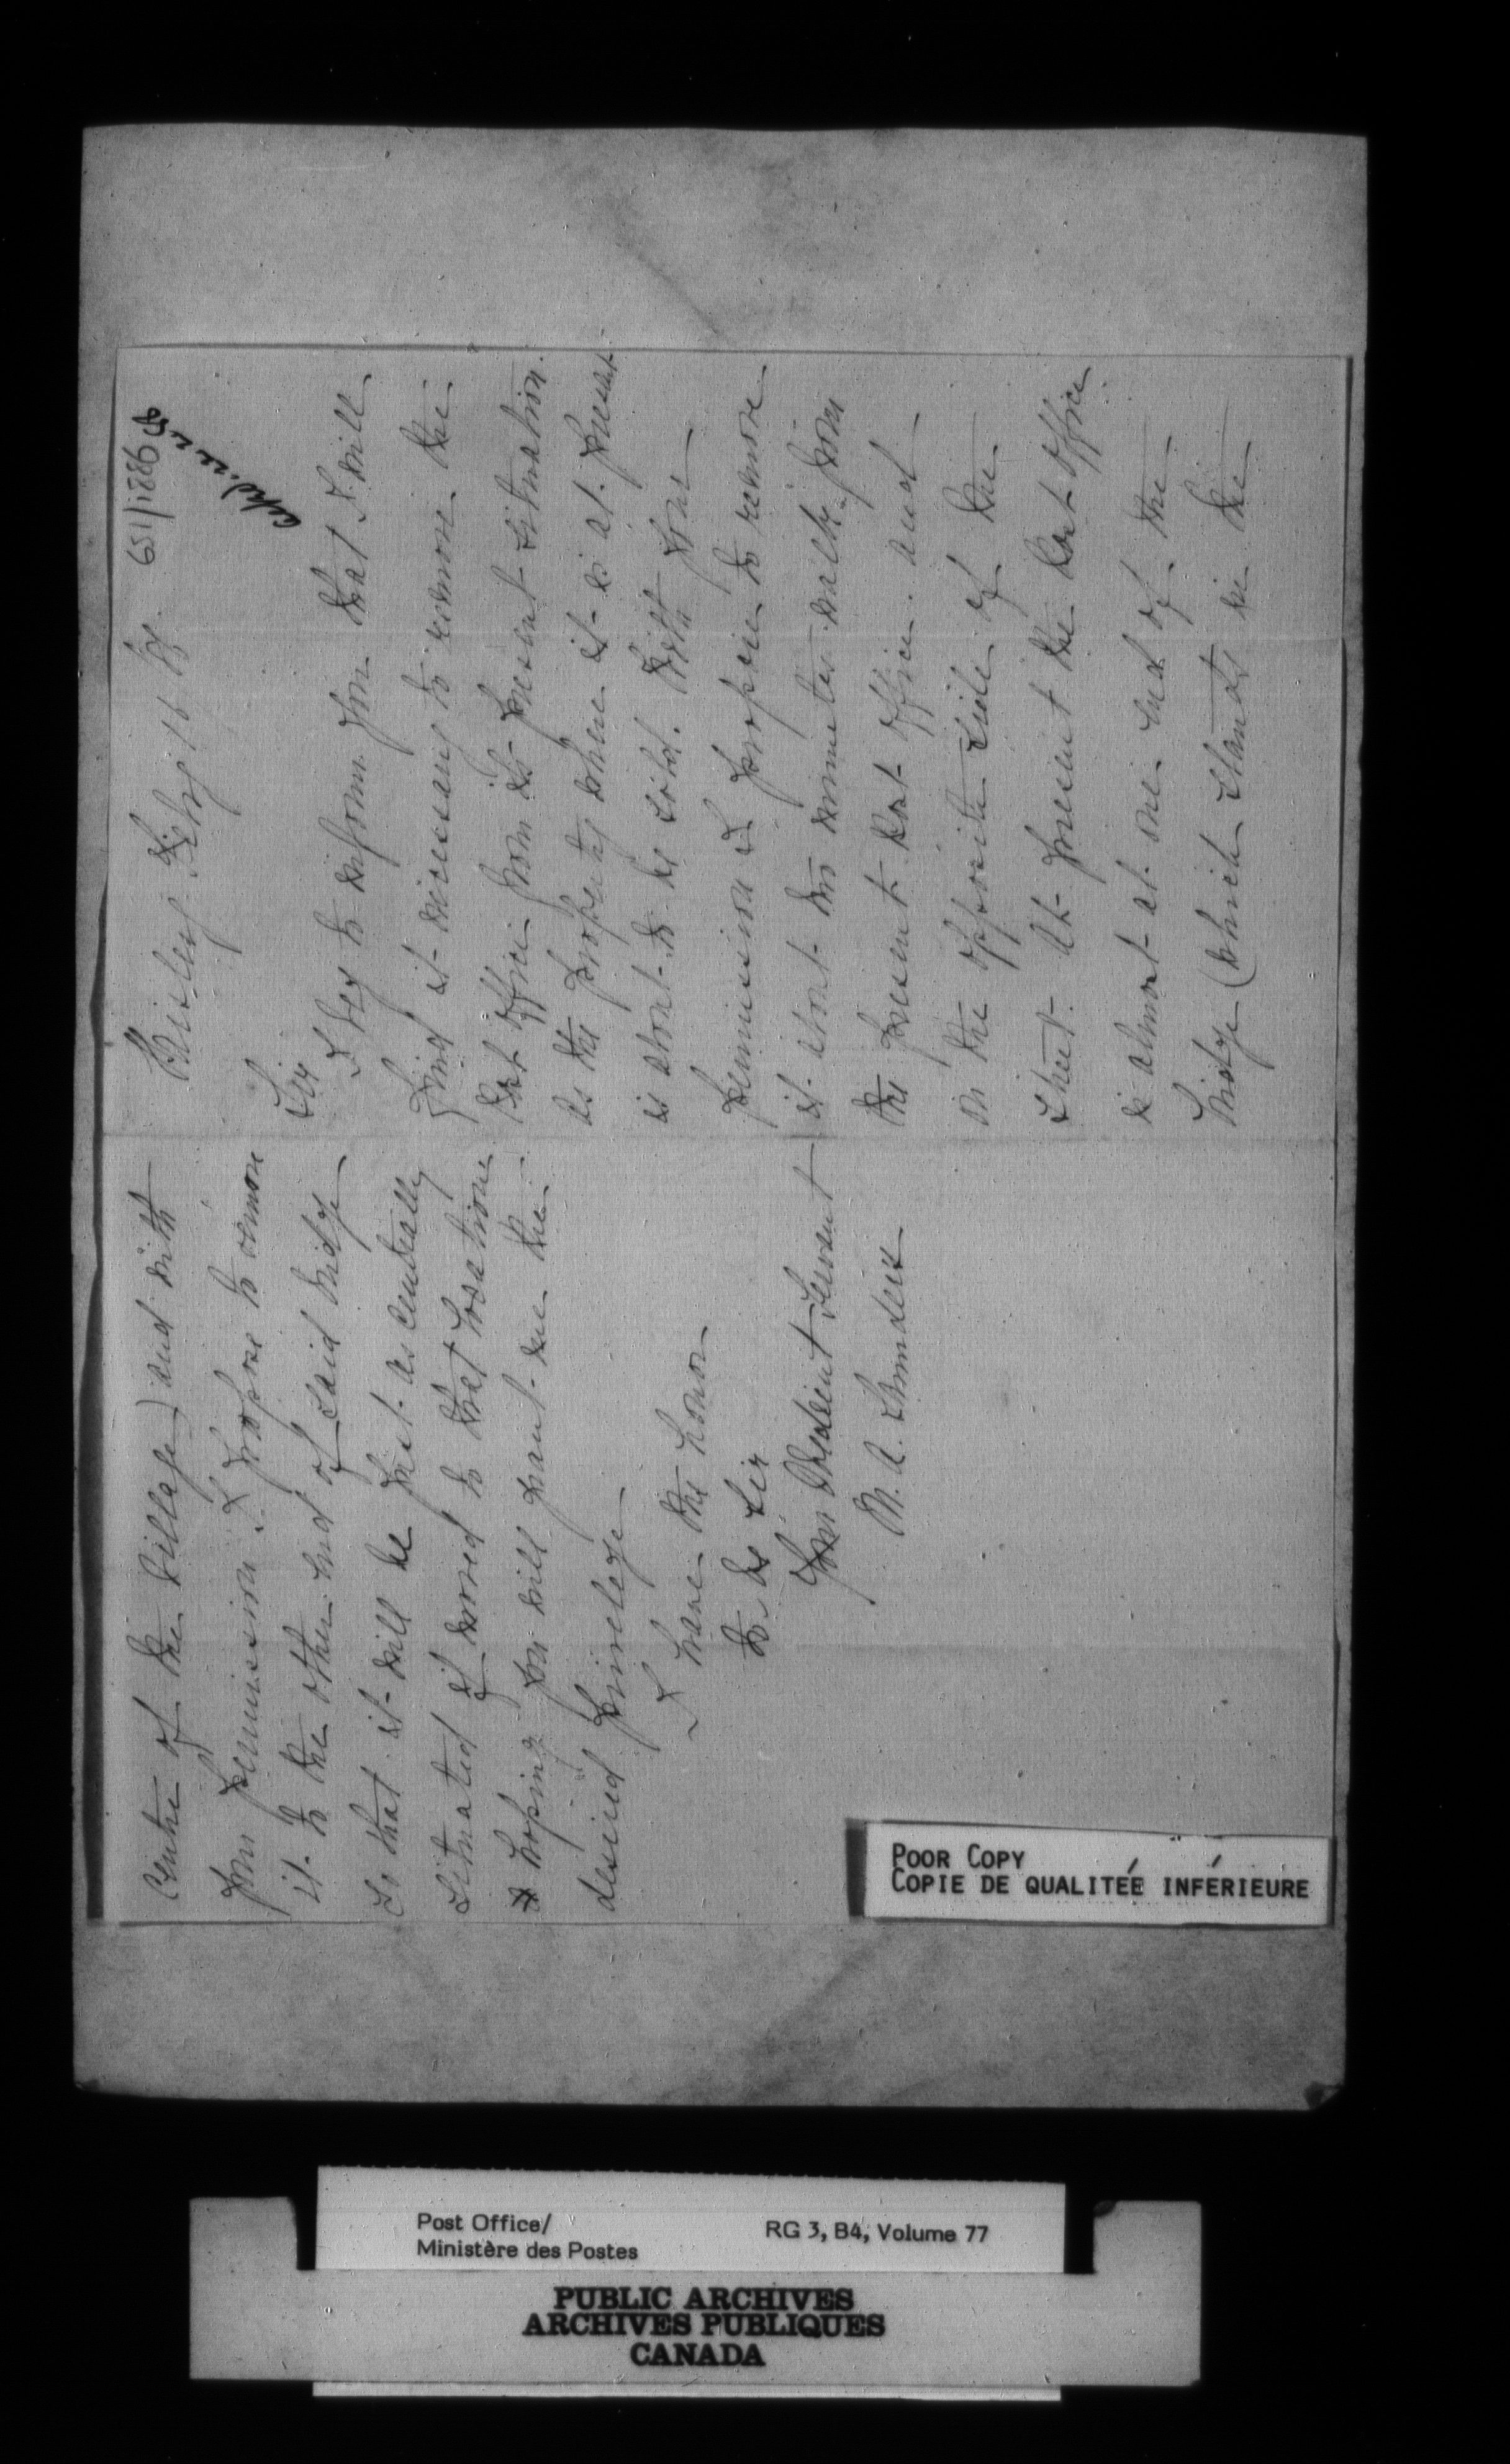 651/1886
Paisley Feby 16 /86
Sir
I beg to inform you that I will
find it necessary to remove the
Post Office from its present situation
as the property where it is at present
is about to be sold. With your
permission I propose to remove
it about two minutes walk from
the present Post Office. and
on the opposite side of the
street. At present the Post Office
is almost at one end of the
bridge (which stands in the
Centre of the Village) and with
your permission I propose to remove
it to the other end of said bridge
so that it will be just as centrally
situated if moved to that location
hoping you will grant me the
desired privilege
I have the honor
to be Sir
Your Obedient Servant
M. A. Saunders
POOR COPY
COPIE DE QUALITÉE INFÉRIEURE
Post Office/
Ministère des Postes
RG 3, B4, Volume 77
PUBLIC ARCHIVES
ARCHIVES PUBLIQUES
CANADA